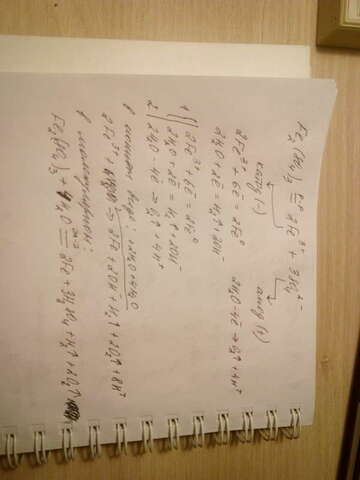 Fe₂(SO₄)₃ = 2Fe³⁺ + 3SO₄²⁻
катод (-) анод (+)
2Fe³⁺ + 6ē = 2Fe⁰ 2H₂O - 4ē → O₂↑ + 4H⁺
2H₂O + 2ē = H₂↑ + 2OH⁻
1 | 2Fe³⁺ + 6ē = 2Fe⁰
2H₂O + 2ē = H₂↑ + 2OH⁻
2 | 2H₂O - 4ē → O₂↑ + 4H⁺
в ионном виде: +2H₂O+4H₂O
2Fe³⁺ + ⇒ 2Fe + 2OH⁻ + H₂↑ + 2O₂↑ + 8H⁺
в молекулярном:
Fe₂(SO₄)₃ + 4H₂O = 2Fe + 3H₂SO₄ + H₂↑ + 2O₂↑